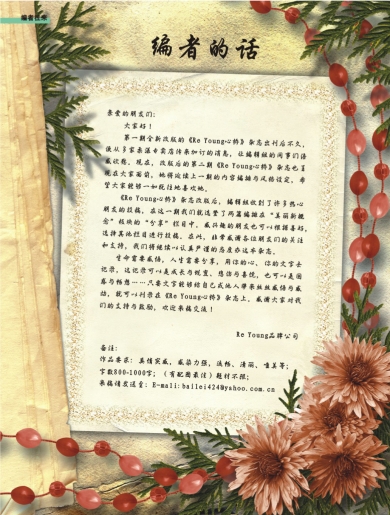 编者的话
亲爱的朋友们：
大家好！
第一期全新改版的《Re Young心桥》杂志出刊后不久，
便从多家美容专卖店传来加订的消息，让编辑组的同事们倍
感欣慰。现在，改版后的第二期《Re Young心桥》杂志也呈
现在大家面前，她将延续上一期的内容编排与风格设定，希
望大家能够一如既往地喜欢她。
《Re Young心桥》杂志改版后，编辑组收到了许多热心
朋友的投稿，在这一期我们就选登了两篇编排在“美丽新概
念”板块的“分享”栏目中，感兴趣的朋友也可以根据喜好，
选择其他栏目进行投稿。在此，非常感谢各位朋友们的关注
和支持，我们将继续以认真严谨的态度办这本杂志。
生命需要感悟，人生需要分享，用你的心，你的文字去
记录，这记录可以是成长与蜕变，悲伤与喜悦，也可以是困
惑与畅想……只要文字能够给自己或他人带来丝丝感悟与感
动，就可以刊录在《Re Young心桥》杂志上，感谢大家对我
们的支持与鼓励，欢迎来稿交流！
Re Young品牌公司
备注：
作品要求：真情实感，感染力强，流畅、清丽、唯美等；
字数800-1000字；（有配图最佳）题材不限；
来稿请发送至：E-mail:bailei424@yahoo.com.cn